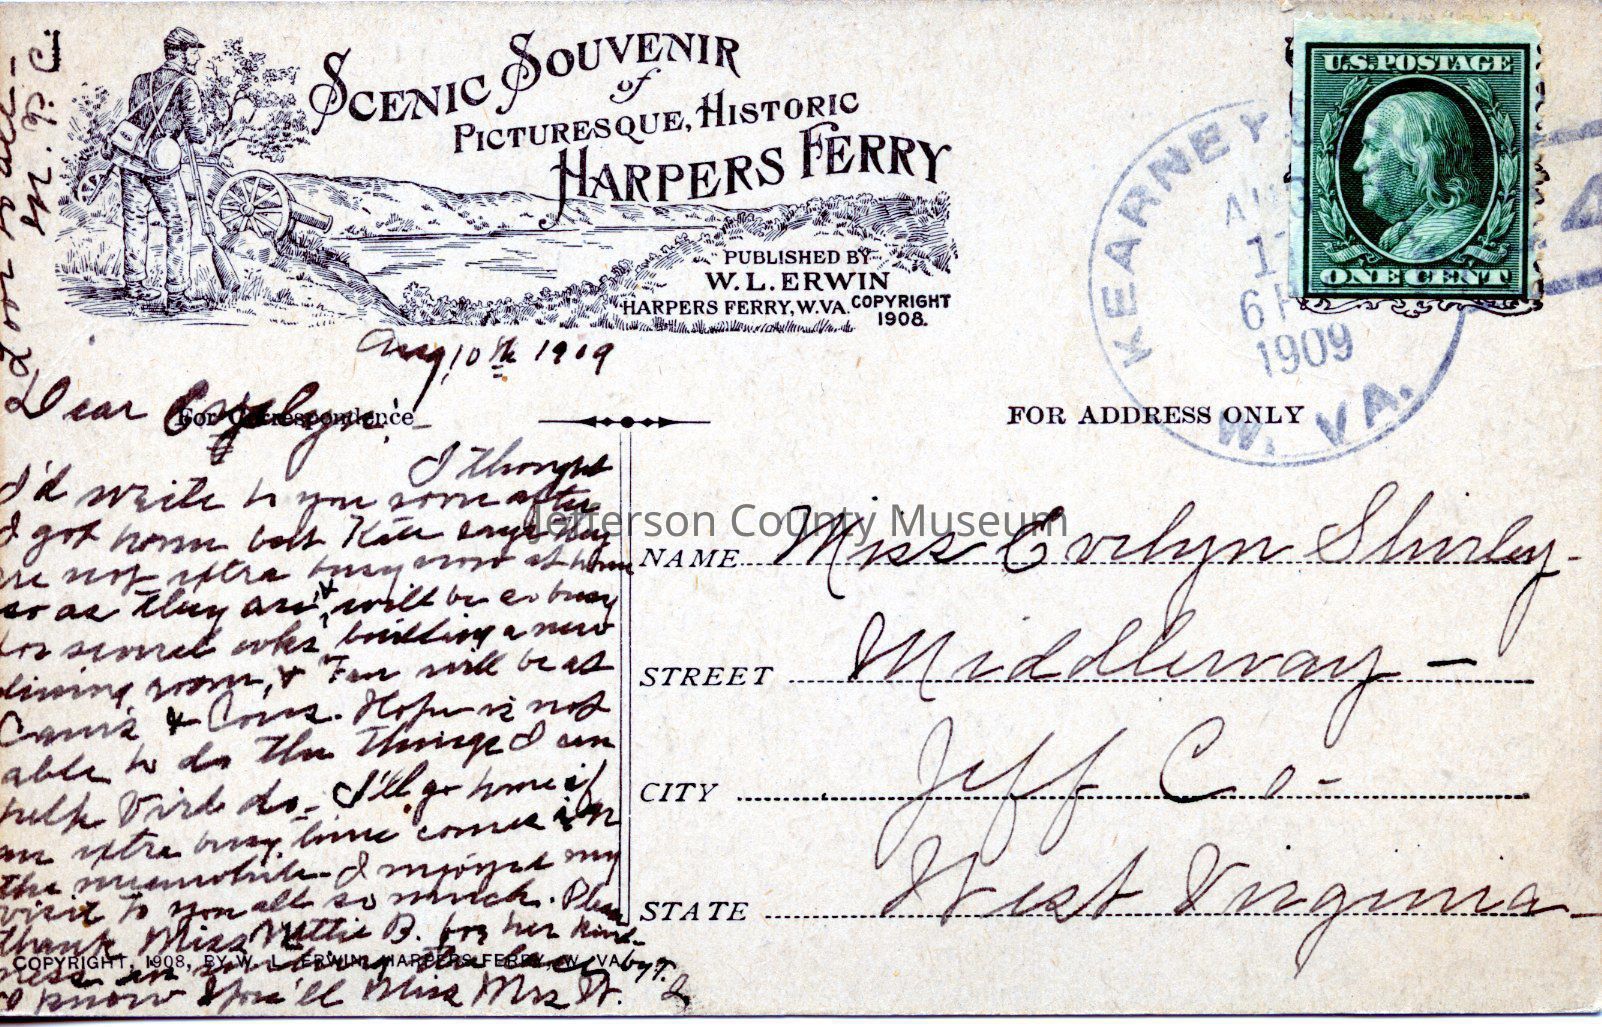 SCENIC SOUVENIR
of
PICTURESQUE, HISTORIC
HARPERS FERRY
PUBLISHED BY
W. L. ERWIN
HARPERS FERRY, W. VA. COPYRIGHT
1908.
U.S. POSTAGE
ONE CENT
KEARNEYS
6 P
1909
W. VA.
4
Aug, 10th 1909
For Correspondence
FOR ADDRESS ONLY
Dear Evelyn,
I thought
I'd write to you soon after
I got home but Kate says they
are not extra busy now at home
so as they are & will be so busy
for several wks, building a new
dining room, & Fan will be at
& Hope is not
able to do the things I can
help Virde do. I'll go home if
an extra busy time comes in
the meanwhile. I enjoyed my
visit to you all so much. Please
thank Miss Mettie B. for her kind-
ness in
I know you'll miss Mrs W.
Love to all-
M. P. C.
NAME Miss Evelyn Shirley-
STREET Middleway-
CITY Jeff Co-
STATE West Virginia-
COPYRIGHT, 1908, BY W. L. ERWIN, HARPERS FERRY, W. VA.
Jefferson County Museum